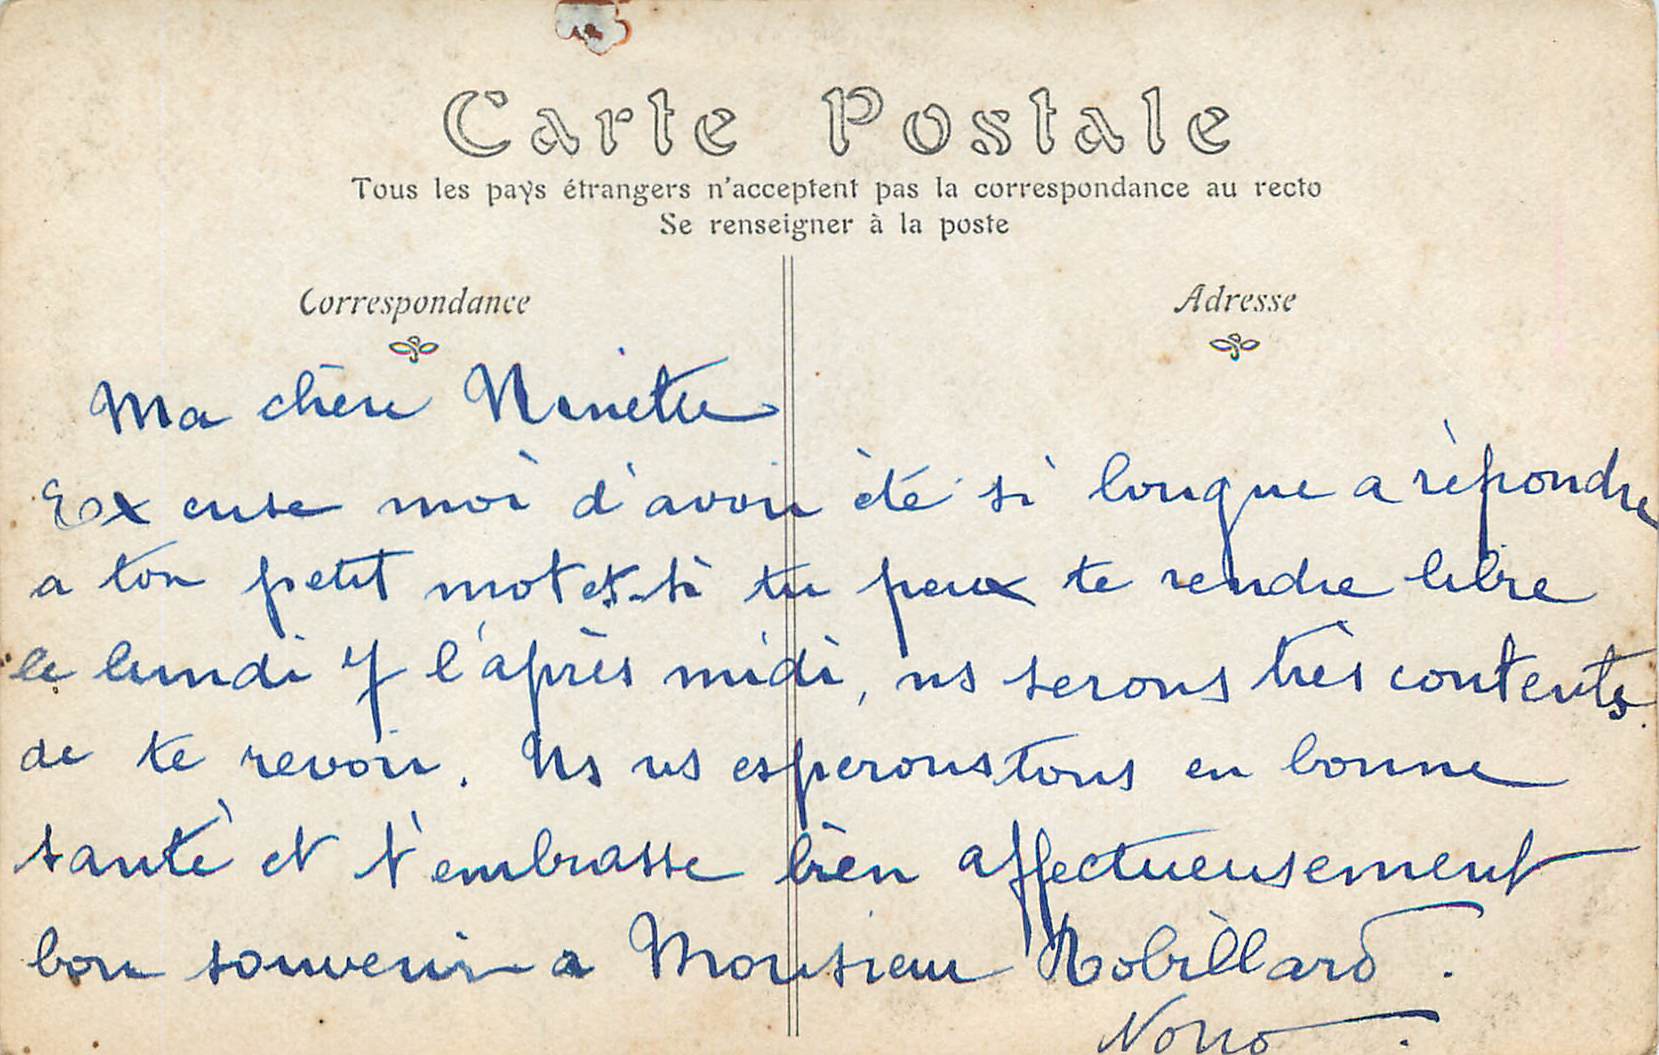 Carte Postale
Tous les pays étrangers n'acceptent pas la correspondance au recto
Se renseigner à la poste
Correspondance
Adresse
Ma chère Ninette
Excuse moi d'avoir été si longue a répondre
a ton petit mot et si tu peux te rendre libre
le lundi 7 l'après midi, ns serons très contents
de te revoir. Ns vs esperons tous en bonne
santé et t'embrasse bien affectueusement
bon souvenir a Monsieur Robillard.
Nono.